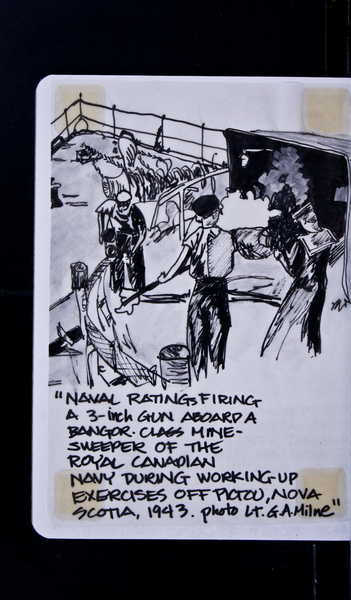 "NAVAL RATINGS FIRING
A 3-inch GUN ABOARD A
BANGOR-CLASS MINE-
SWEEPER OF THE
ROYAL CANADIAN
NAVY DURING WORKING-UP
EXERCISES OFF PICTOU, NOVA
SCOTIA, 1943. photo Lt. G.A. Milne"